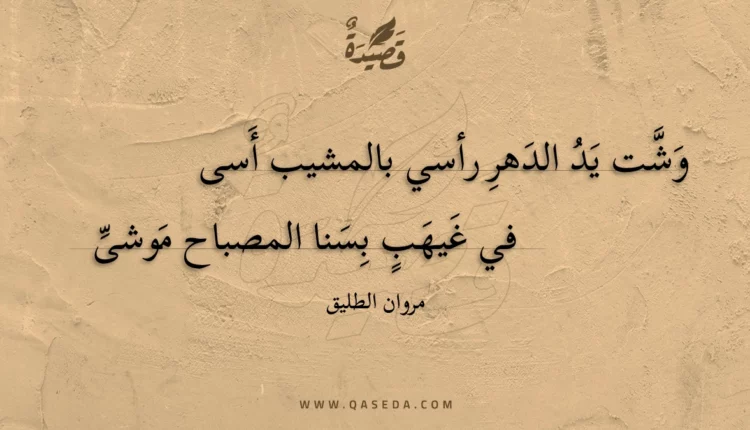 قَصِيْدَةٌ
وَشَّت يَدُ الدَهرِ رأسي بالمشيب أَسى
في غَيهَبٍ بِسَنا المصباح مَوشىِّ
مروان الطليق
WWW.QASEDA.COM